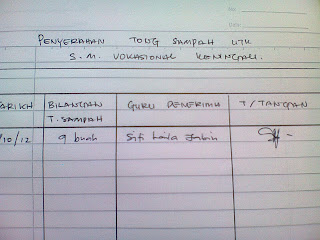 PENYERAHAN TONG SAMPAH UTK
S.M. VOKASIONAL KENINGAU.
ARIKH BILANGAN T.SAMPAH GURU PENERIMA T/TANGAN
/10/12 9 buah Siti Laila